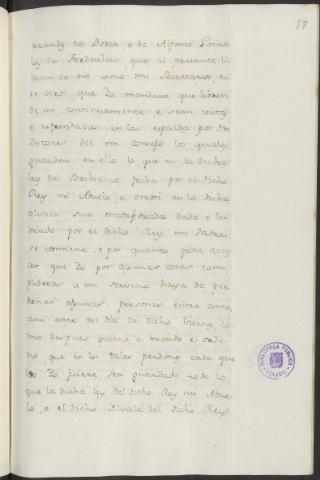 18
de Tordesillas, que al presente li
bran de mi como mis Secretarios, e
de otro que Yo mandare que libren
de mi continuamente e sean vista
e refrendada en las espaldas por dos
Dotores del mi Consejo lo qual
guarden en ello lo que en la dicha
ley de Bribiesca fecha por el dicho
Rey mi Abuelo, e otrosi en la dicha
alvala suso encorporada dada e li
brada por el dicho Rey mi Padre
se contiene: e por quanto podra acaes
cer que Yo por algunas cosas com
plideras a mi servicio haya de per
donar algunas personas entre año,
ansi ante del dia del dicho Viernes, co
mo despues quiero e mando e orde
no que en los tales perdones cada que
los Yo ficiere sea guardado todo lo
que la dicha ley del dicho Rey mi Abue
lo, e el dicho Alvala del dicho Rey
BIBLIOTECA PUBLICA
TOLEDO